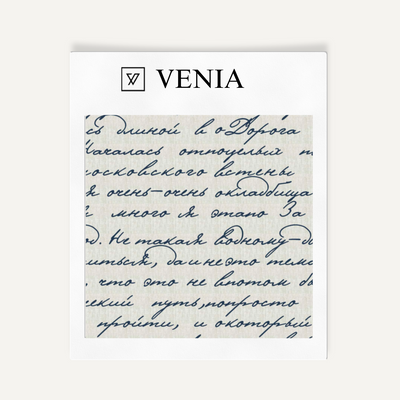 VENIA
сь длиной в о Дорога
Началась отпоцелых
московского встены
я очень-очень окладбища
много я этапо За
од. Не такая водному-
иться, да и не это
что это не впотом
ческий путь, попросто
пройти, и окоторый